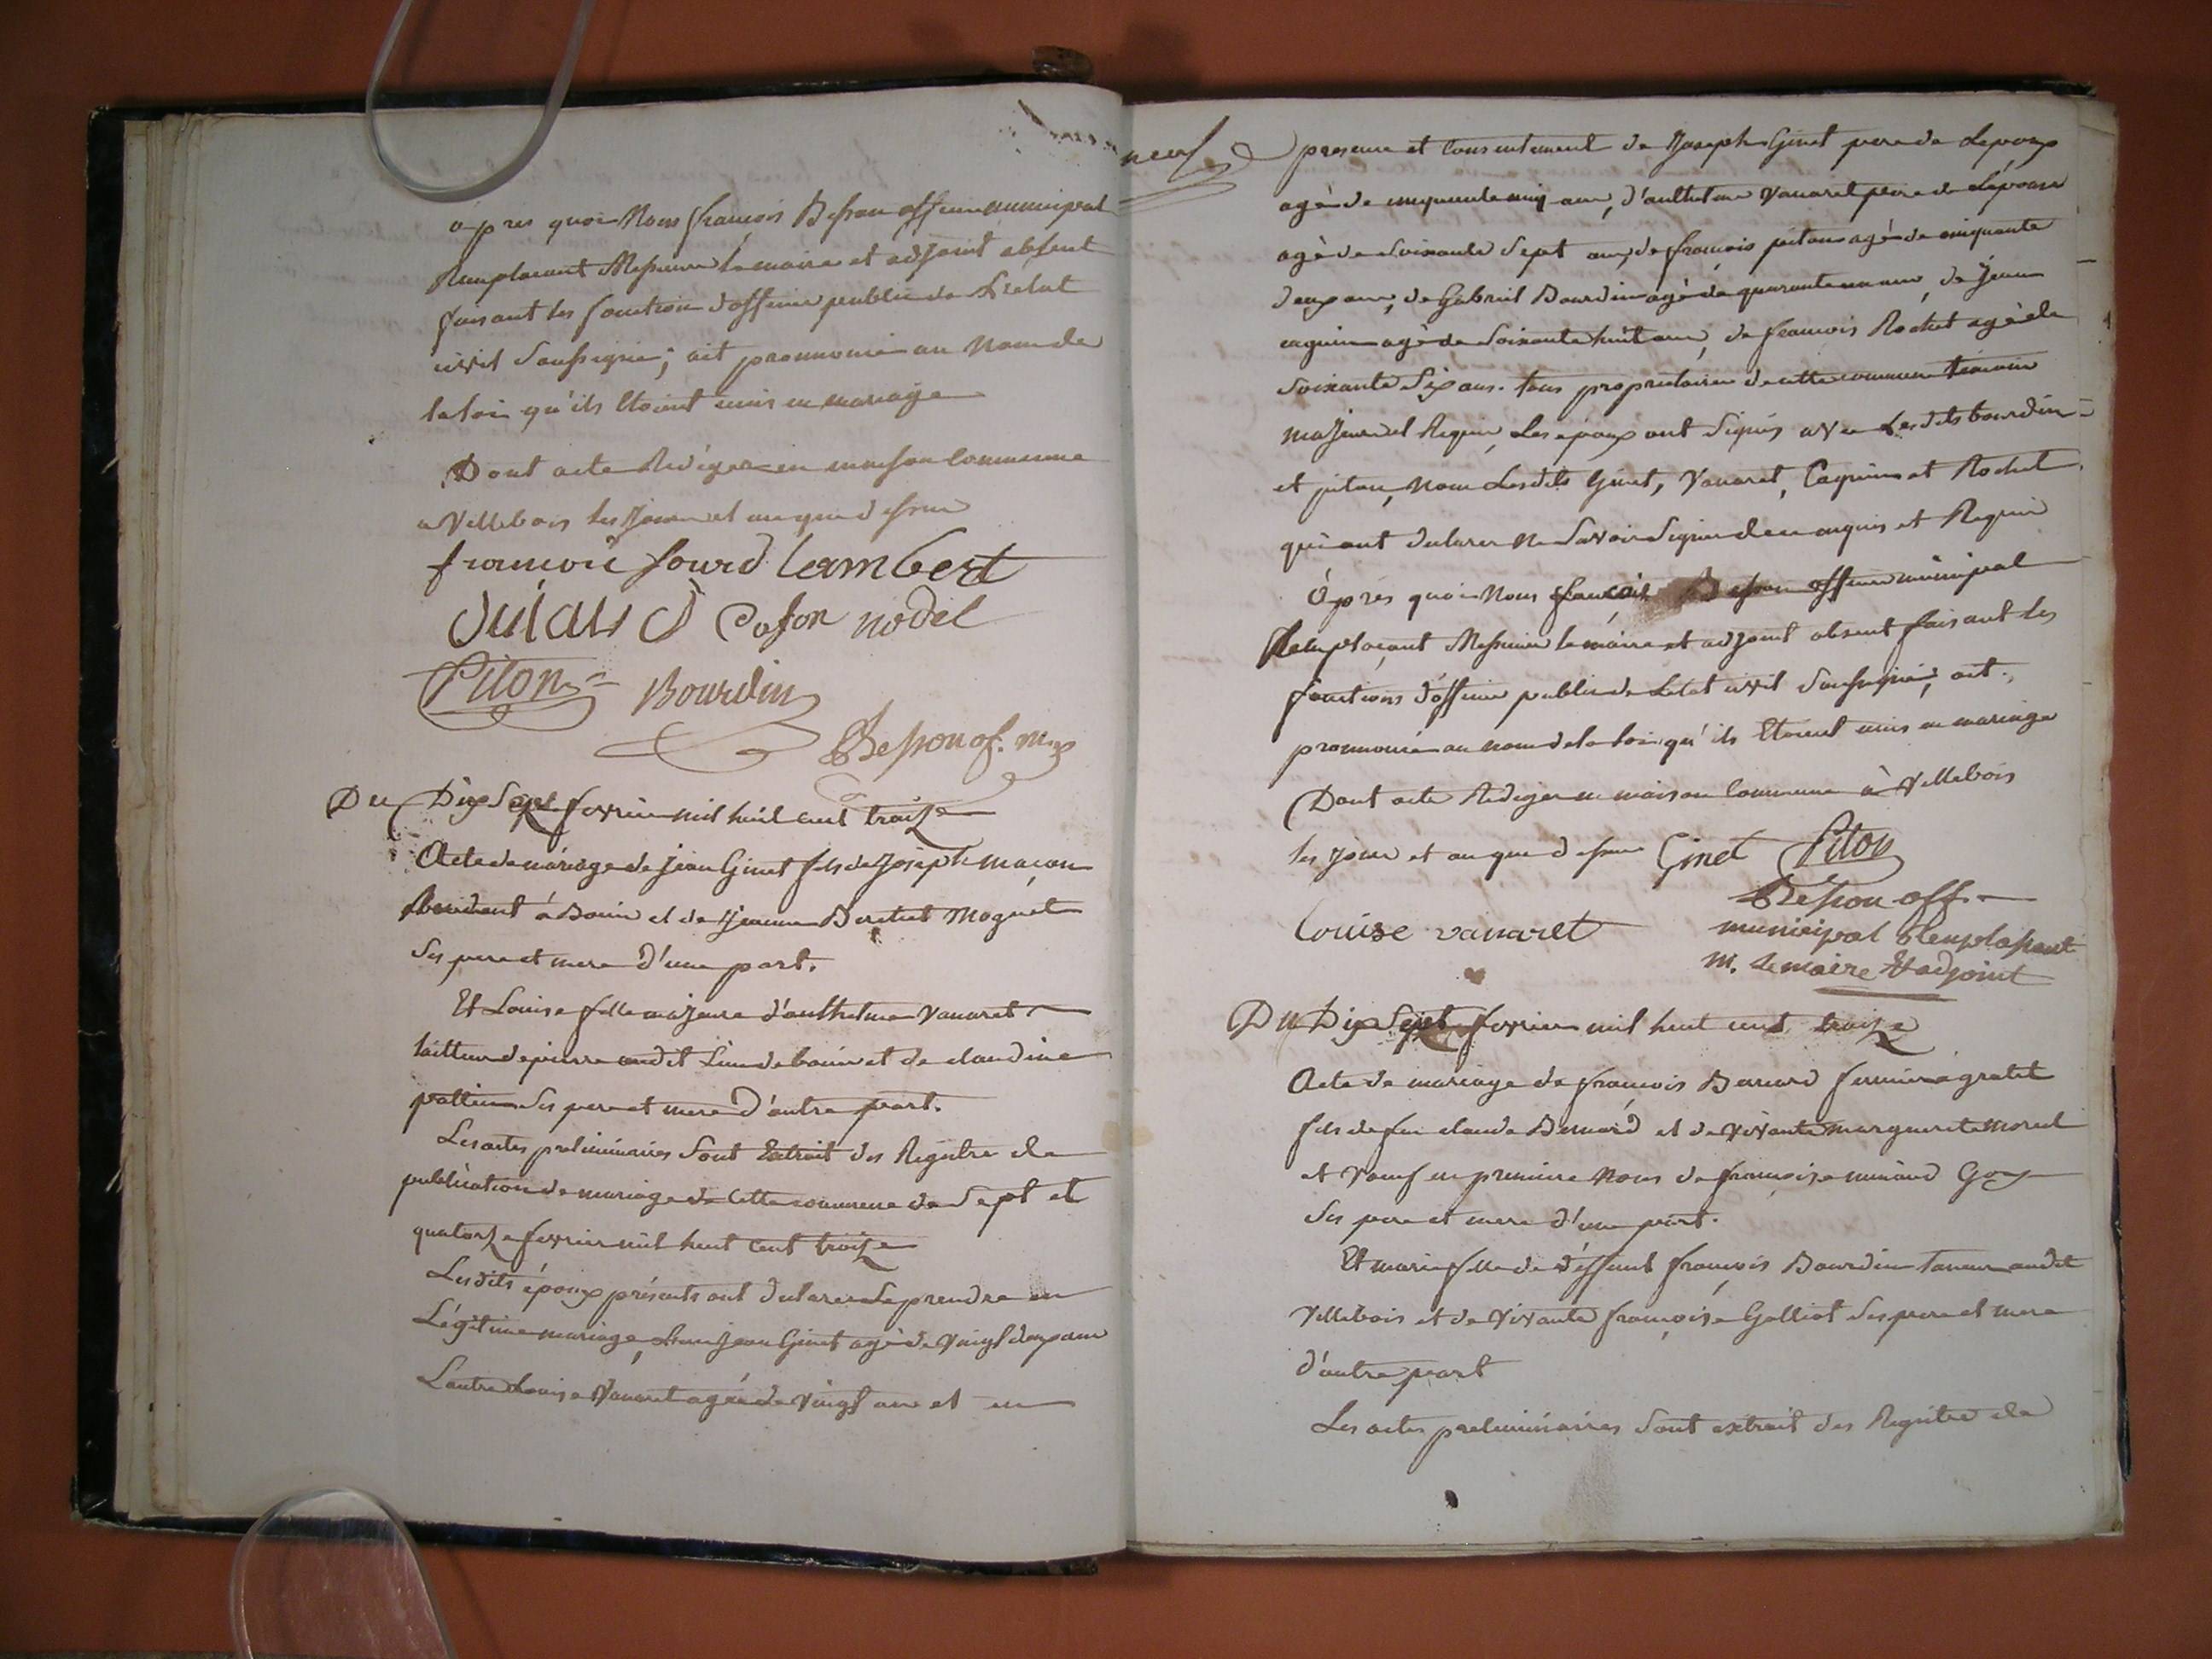 après quoi Nous françois Besson officier municipal
Remplacant Messieurs le maire et adjoint absent
faisant les fonction d'officier public de L'etat
civil Soussigné; ait prononcé au Nom de
la loi qu'ils Etoient unis en mariage
Dont acte Rédiger en maison Commune
a Villebois les Jour et an que dessus
françoi Sourd Lambert
Dujalis Cason nodet
Piton Bourdin
Besson of. m.
Du Dix Sept fevrier mil huit cent traize
Acte de mariage de jean Ginet fils de Joseph maçon
Résident à Bouis et de Jeanne Bertet Moguet
Ses pere et mere d'une part.
Et Louise fille majeure d'anthelme Vanaret
tailleur de pierre audit Lieu de bouis et de claudine
pattin Ses pere et mere D'autre part.
Les actes preliminaires Sont Extrait des Registre de
publication de mariage de Cette commune de Sept et
quatorze fevrier mil huit Cent traize
Lesdits époux présents ont declarer Se prendre en
Légitime mariage, L'un jean Ginet agé de Vingt deux ans
L'autre Louise Vanaret agée de Vingt ans et en
neuf
presence et Consentement de Joseph Ginet pere de Lepoux
agé de cinquante cinq ans, d'anthelme Vanaret pere de L'épouse
agé de Soixante Sept ans, de françois piton agé de cinquante
deux ans, de Gabriel Bourdin agé de quarante un ans, de Jean
caquin agé de Soixante huit ans, de francois Rochet agé de
Soixante Six ans. tous proprietaires de cette commune témoins
majeurs et Requis, Les époux ont Signés avec Lesdits bourdin
et piton, Non Lesdits Ginet, Vanaret, Caquin et Rochet
qui ont declarer Ne Savoir Signer de ce enquis et Requis
Après quoi Nous françois Besson officier municipal
Remplaçant Messieurs le maire et adjoint absent faisant les
fonctions d'officier public de Letat civil Soussigné, ait
prononcé au nom de la loi qu'ils Etoient unis en mariage
Dont acte Rediger en maison Commune à Villebois
les jour et an que dessus Ginet Piton
Besson off.
Louise vanaret municipal Remplassant
m. Le maire et adjoint
Du Dix Sept fevrier mil huit cent traize
Acte de mariage de françois Bernard fermier a gratet
fils de feu claude Bernard et de Vivante marguerite morel
et Veuf en premiere Noces de françoise Goy
Ses pere et mere d'une part.
Et marie fille de déffunt françois Bourdin taneur audit
Villebois et de Vivante françoise Galliot Ses pere et mere
d'autre part
Les actes preliminaires Sont extrait des Registre de